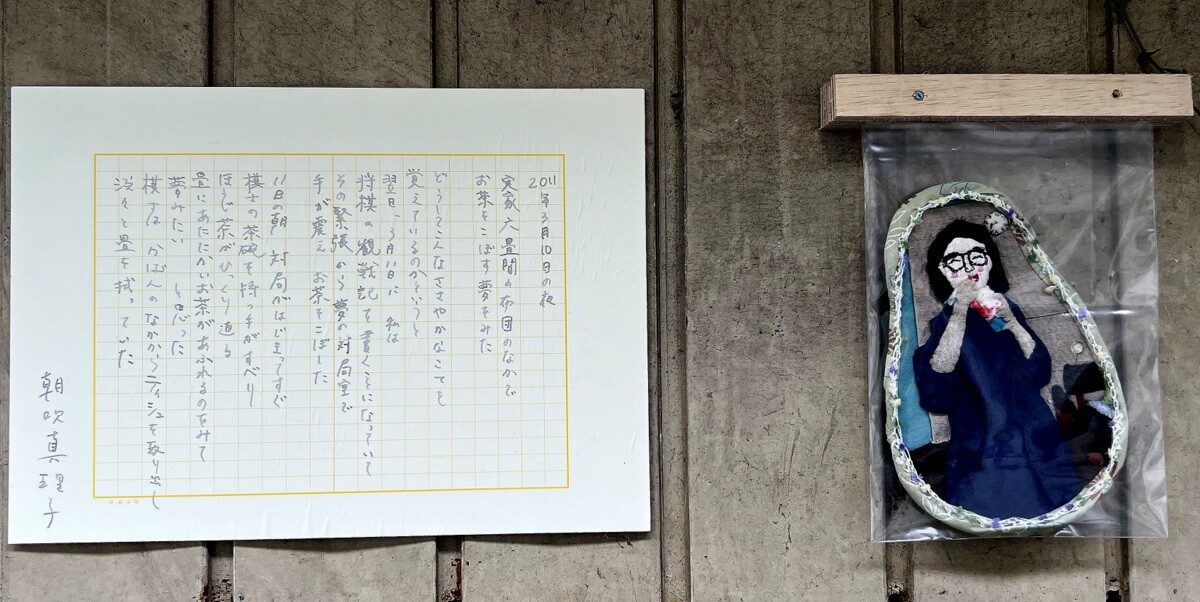 2011年3月10日の夜
実家六畳間の布団のなかで
お茶をこぼす夢をみた
どうしてこんなささやかなことを
覚えているのかというと
翌日、3月11日に 私は
将棋の観戦記を書くことになっていて
その緊張から 夢の対局室で
手が震え お茶をこぼした
11日の朝 対局がはじまってすぐ
棋士の茶碗を持つ手がすべり
ほうじ茶がひっくり返る
畳にあたたかいお茶があふれるのをみて
夢みたい と思った
棋士は かばんのなかからティシュを取り出し
淡々と畳を拭っていた
朝吹真理子